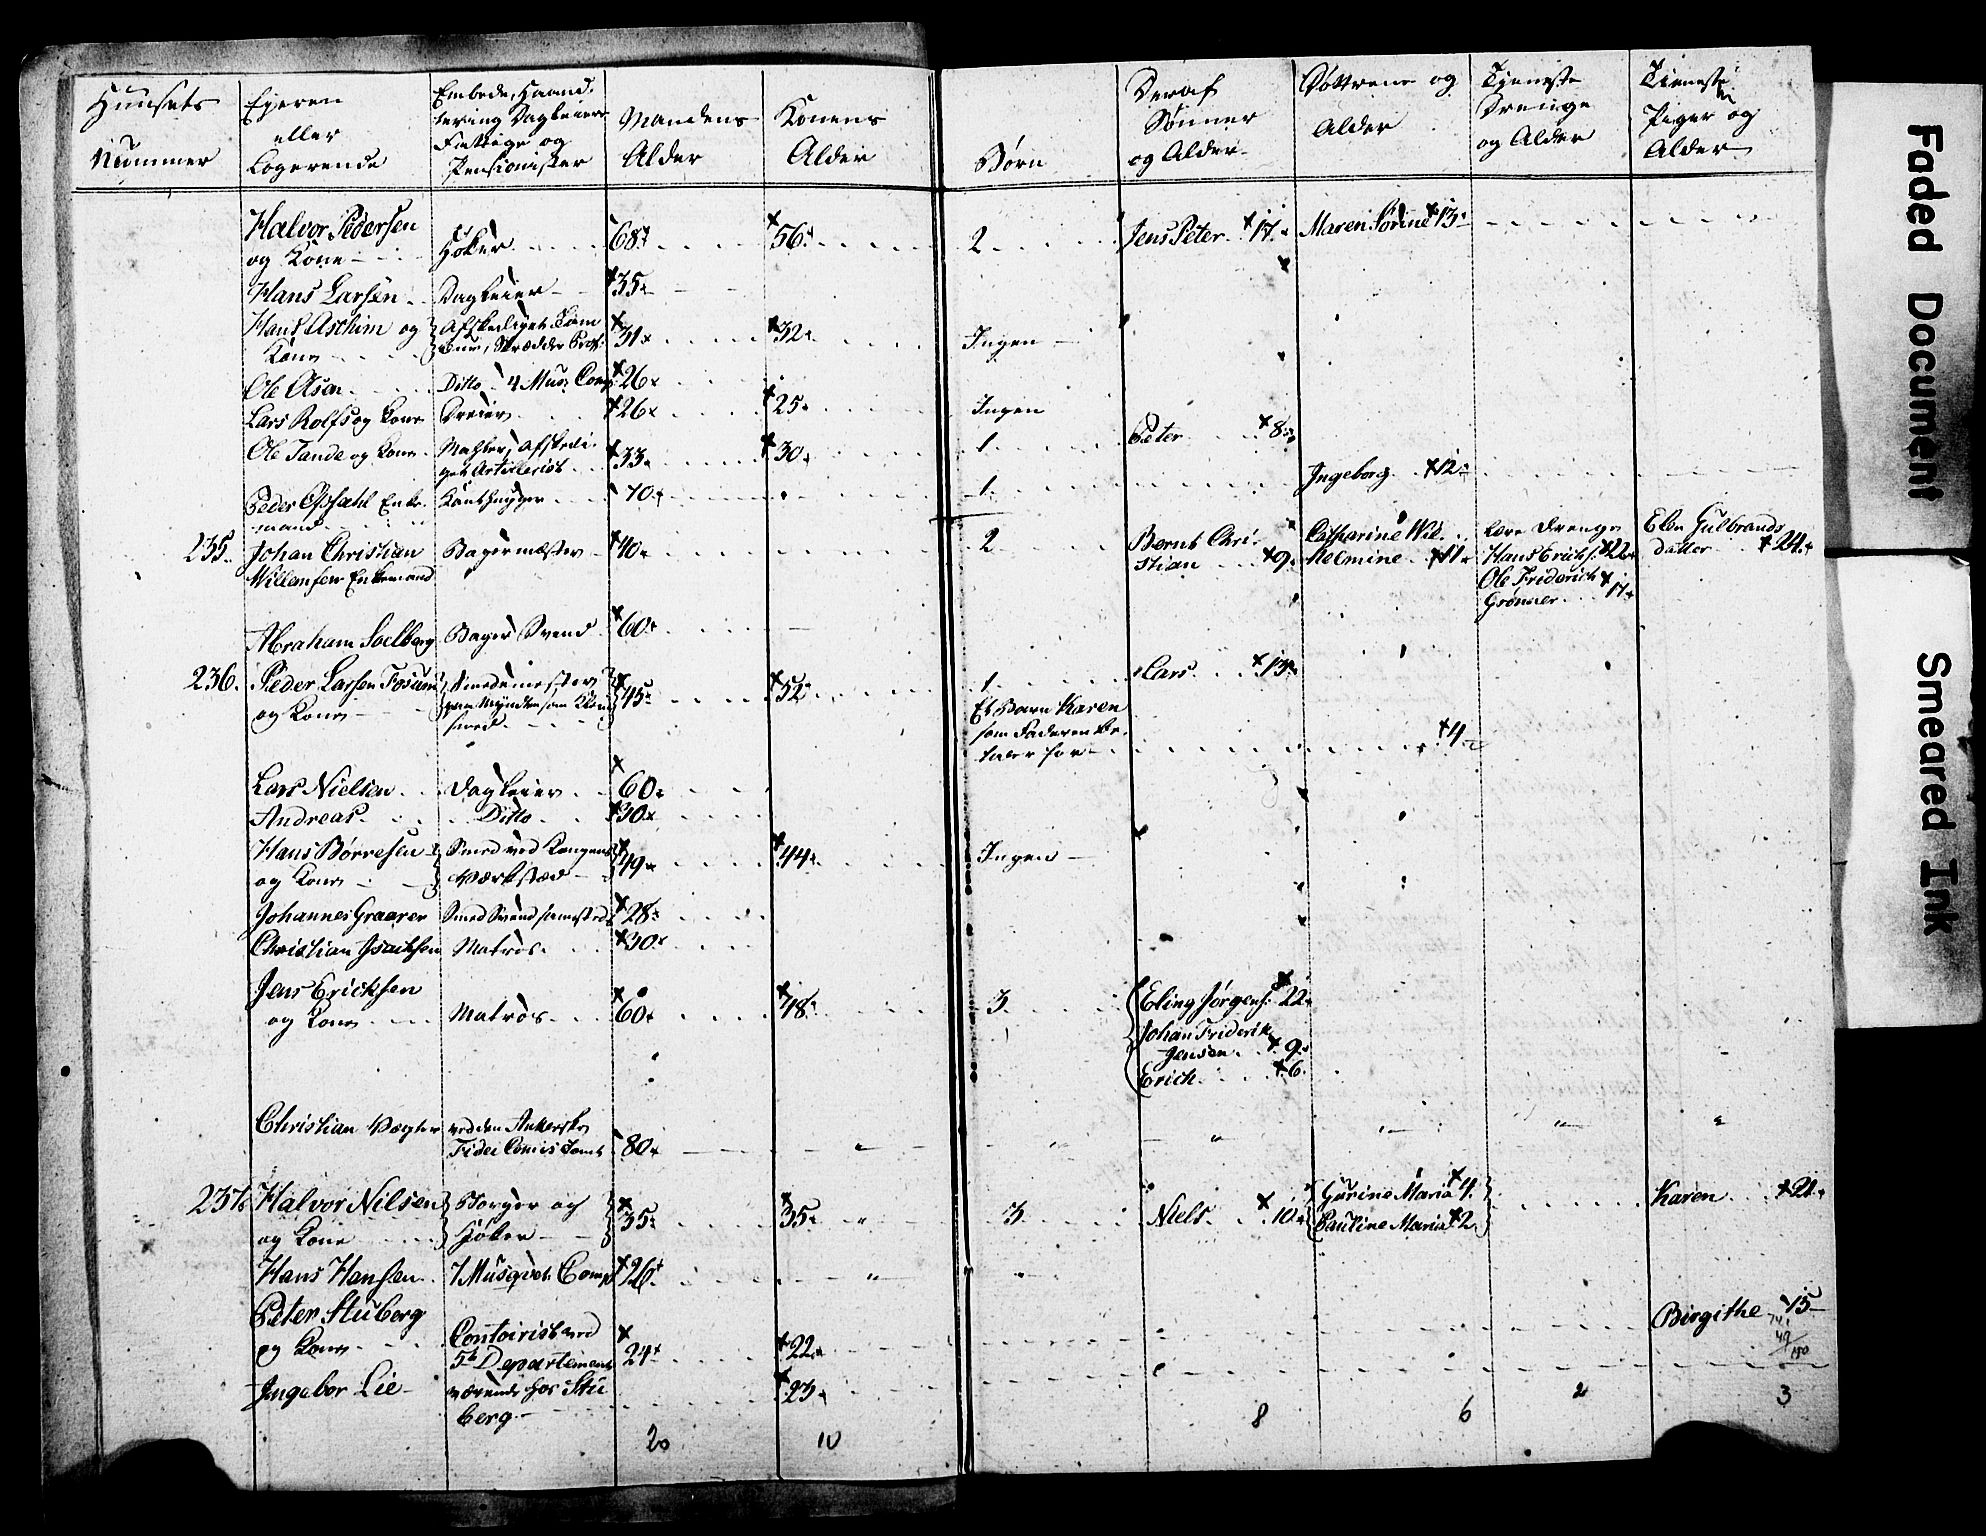 Huusets Nummer
Ejeren eller Logerende
Embede, Haandtering Dagleiere Fattige og Pensionister
Mandens Alder
Konens Alder
Børn
Deraf Sønner og Alder
Døttrene og Alder
Tjeneste Drenge og Alder
Tieneste Piger og Alder
Halvor Pedersen og Kone Høker 68 56 2 Jens Peter 17 Maren Sørine 13
Hans Larsen Dagleier 35
Hans Aschim og Kone Afskediget 31 32 Ingen
Ole Olsen Ditto 4 Mus. Comp 26
Lars Rolfs og Kone Dreier 26 25 Ingen
Ole Tande og Kone Mahler, Afskediget Artillerist 33 30 1 Peter 8
Peder Opsahl Enkemand 70 1 Ingeborg 12
235. Johan Christian Willemsen Enkemand Bagermæster 40 2 Bernt Christian 9 Catharine Wilhelmine 11 Lære Drenge Hans Erichs. 22 Ole Friderich Grønner 17 Elen Gulbrands datter 24
Abraham Soelberg Bager Svend 60
236. Peder Larsen Fosum og Kone Smedemester 45 52 1 Lars 13
Et Barn Karen som Faderen Betaler for 4
Lars Nielsen Dagleier 60
Andreas Ditto 30
Hans Børresen og Kone Smed ved Kongens Værksted 49 44 Ingen
Johannes Graarer Smed Svend sammesteds 28
Christian Isachsen Matros 30
Jens Ericksen og Kone Matros 60 48 3 Eling Jørgens. 22
Johan Friderik Jensen 9
Erich 6
Christian Vægter ved den Ankerske Fidei Comis Tomt 80
237 Halvor Nilsen og Kone Borger og Høker 35 35 3 Niels 10 Gurine Maria 4 Karen 21
Pauline Maria 2
Hans Hansen 7 Musqvet. Comp 26
Peter Stuberg og Kone Contoirist ved 5te Departement 24 22 Birgithe 15
Ingebor Lie værende hos Stuberg 23
20 10 8 6 2 3
Faded Document
Smeared Ink